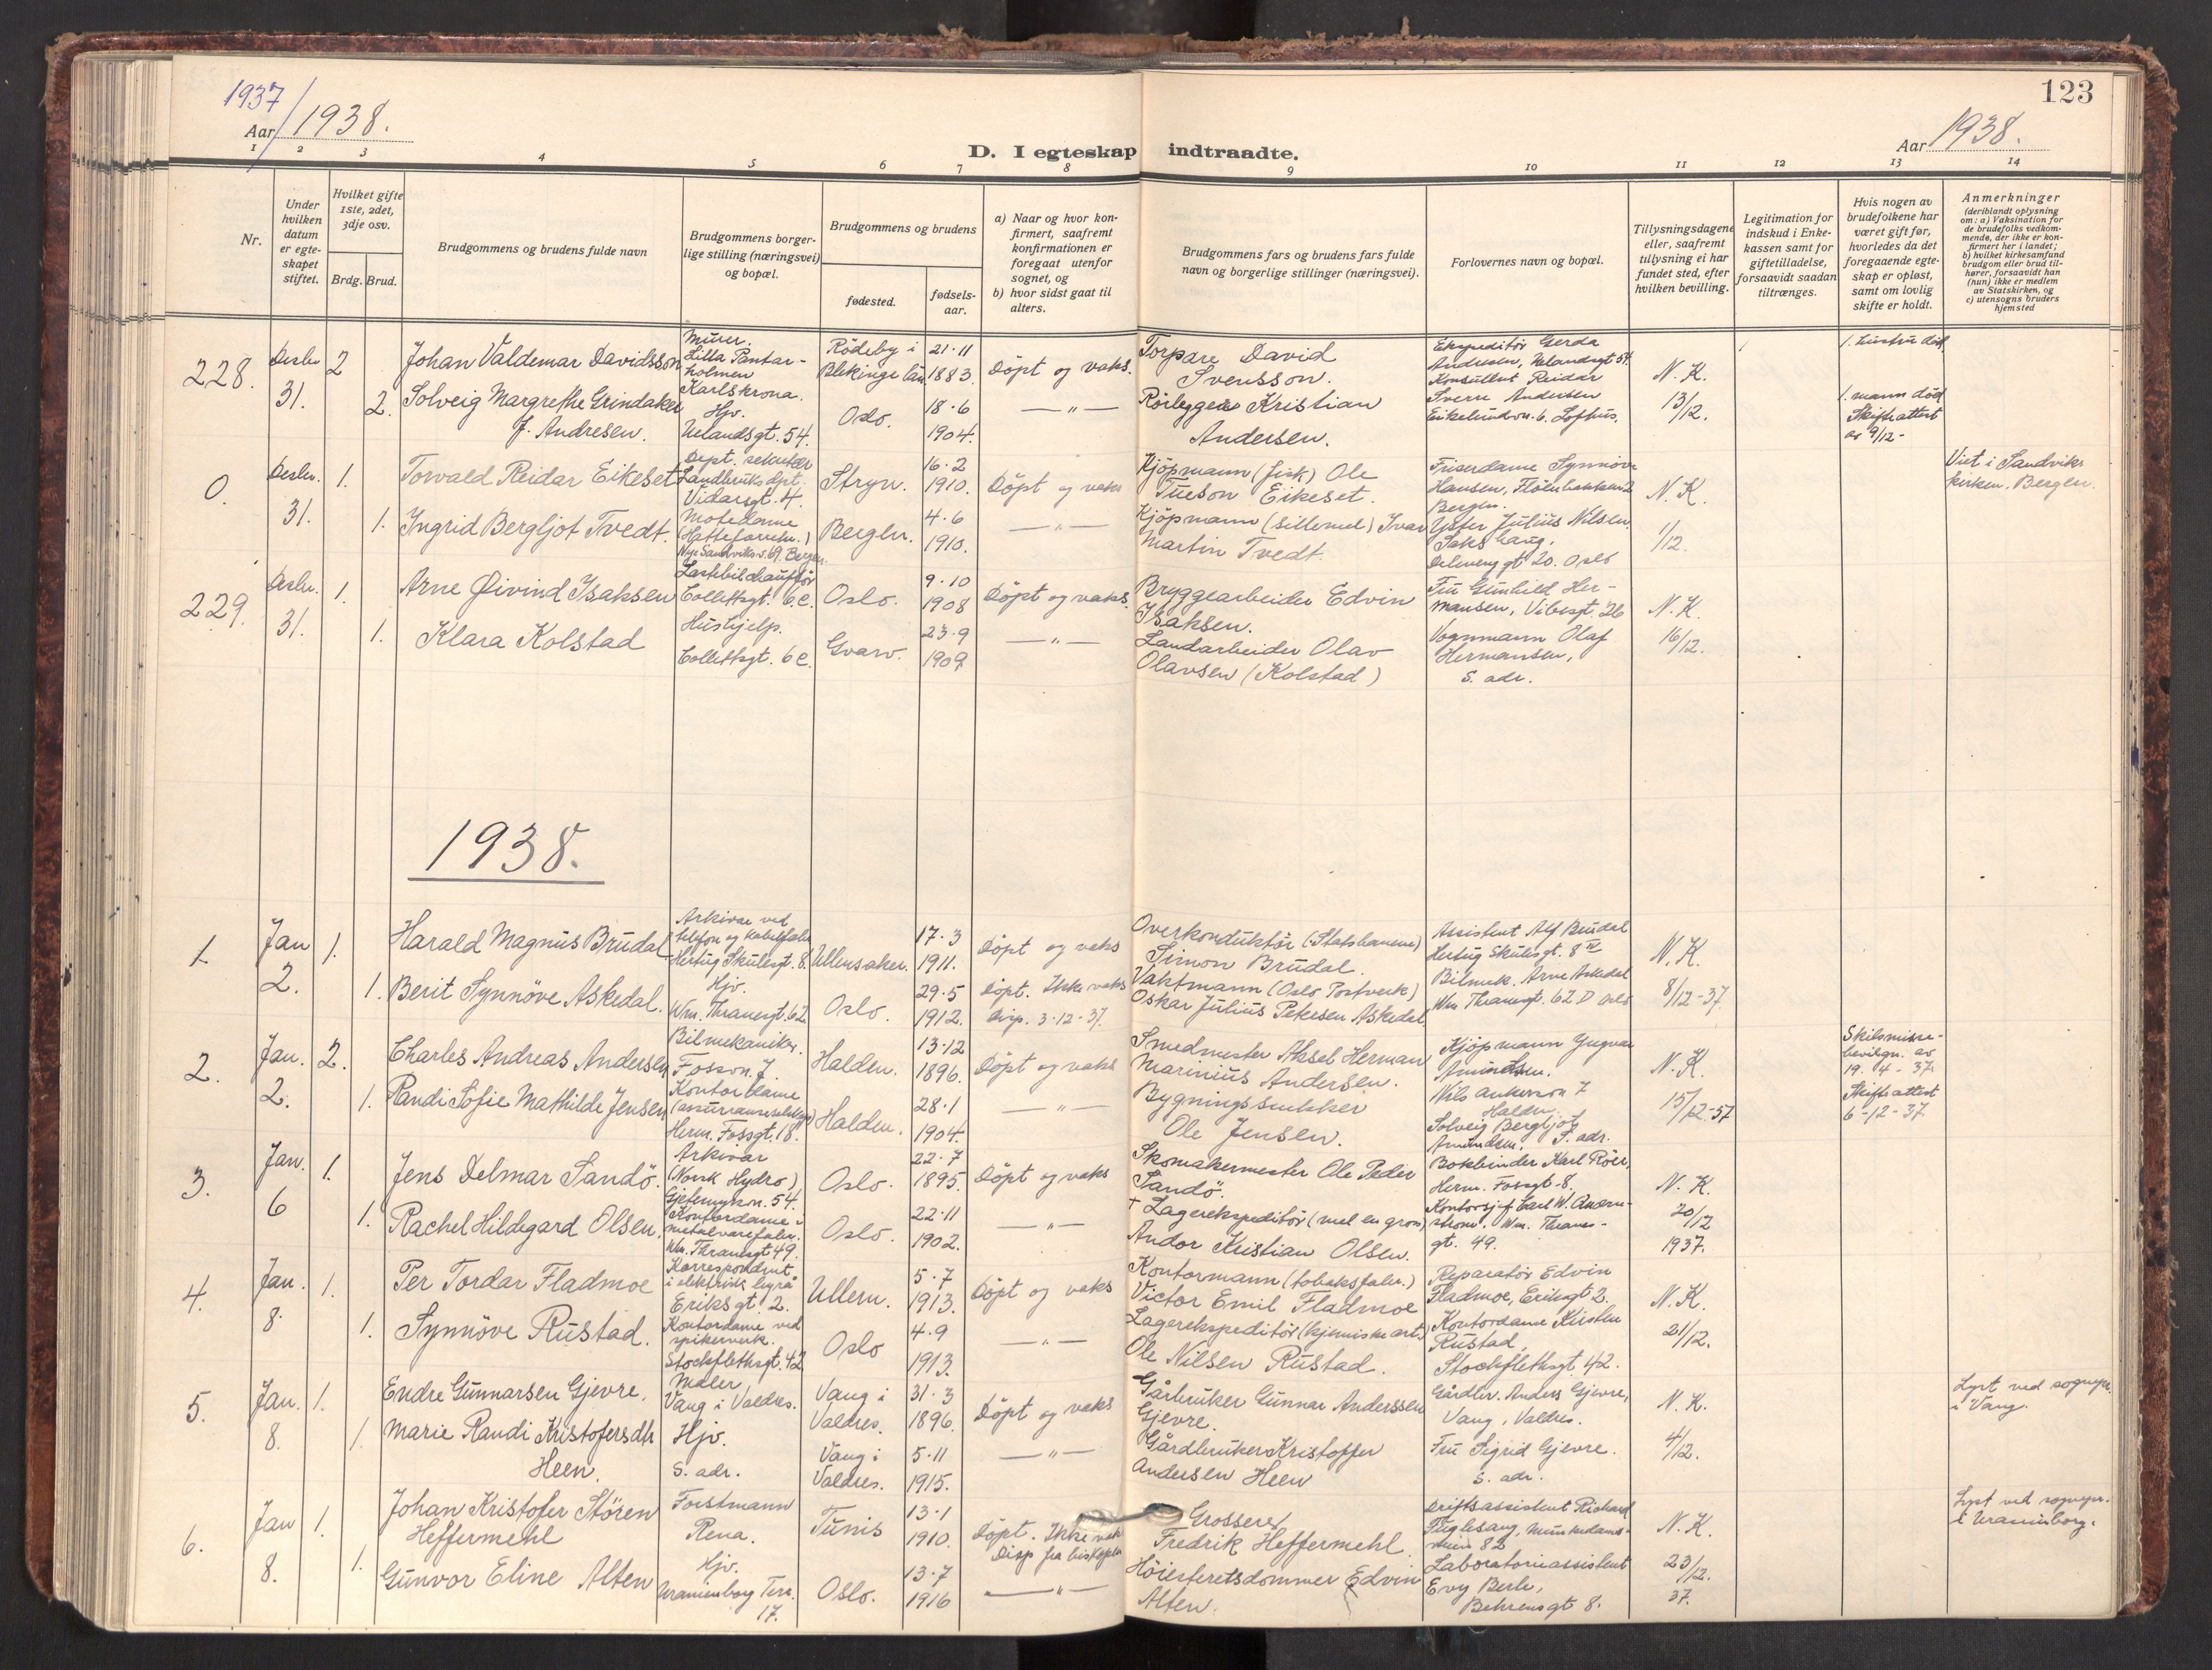 1937/
Aar 1938.
D. I egteskap indtraadte.
Aar 1938.
123
1 2 3 4 5 6 7 8 9 10 11 12 13 14
Nr.
Under hvilken datum er egteskapet stiftet.
Hvilket gifte 1ste, 2det, 3dje osv.
Brdg. Brud.
Brudgommens og brudens fulde navn
Brudgommens borgerlige stilling (næringsvei) og bopæl.
Brudgommens og brudens
fødested.
fødselsaar.
a) Naar og hvor konfirmert, saafremt konfirmationen er foregaat utenfor sognet, og
b) hvor sidst gaat til alters.
Brudgommens fars og brudens fars fulde navn og borgerlige stillinger (næringsvei).
Forlovernes navn og bopæl.
Tillysningsdagene eller, saafremt tillysning ei har fundet sted, efter hvilken bevilling.
Legitimation for indskud i Enkekassen samt for giftetilladelse, forsaavidt saadan tiltrænges.
Hvis nogen av brudefolkene har været gift før, hvorledes da det foregaaende egteskap er opløst, samt om lovlig skifte er holdt.
Anmerkninger
(deriblandt oplysning om: a) Vaksination for de brudefolks vedkommende, der ikke er konfirmert her i landet; b) hvilket kirkesamfund brudgom eller brud tilhører, forsaavidt han (hun) ikke er medlem av Statskirken, og c) utensogns bruders hjemsted
228. Desbr 31. 2
Johan Valdemar Davidsson
Murer. Lilla Pantarholmen Karlskrona.
Rödeby i Blekinge län
21-11 1883.
Döpt og vaks.
Torpare David Svensson.
Ekspeditör Gerda Andresen, Uelandsgt 54.
Konsulent Reidar Sverre Andersen
Eikelundvn. 6. Lofthus.
N. K. 13/12.
1. hustru död
2. Solveig Margrethe Grindaker f. Andresen.
Hjv. Uelandsgt. 54.
Oslo.
18-6 1904.
— " —
Rörlegger Kristian Andersen.
1. mann död
Skifteattest av 9/12-
0. Desbr. 31. 1.
Torvald Reidar Eikeset
Dept. sekretær Landbruksdpt. Vidarsgt. 4.
Stryn.
16-2 1910.
Döpt og vaks
Kjöpmann (fisk) Ole Tueson Eikeset.
Friserdame Synnöve Hansen, Bergen.
N. K. 1/12.
Viet i Sandvikskirken, Bergen.
1. Ingrid Bergljot Tvedt.
Motedame
Nye Sandviksv. 69. Bergen.
Bergen.
4-6 1910.
— " —
Kjöpmann (sillemel) Ivar Martin Tvedt.
Julius Nilsen
20. Oslo
229. Desbr. 31. 1.
Arne Øivind Isaksen
Lastebilchauffør Collettsgt. 6c.
Oslo.
9-10 1908
Döpt og vaks.
Bryggearbeider Edvin Isaksen.
Fru Gunhild Hermansen, Vibesgt. 26
N. K. 16/12.
1. Klara Kolstad
Hushjelp. Collettsgt. 6c.
Gvarv.
23-9 1909
— " —
Landarbeider Olav Olavsen (Kolstad)
Vognmann Olaf Hermansen, s. adr.
1938.
1. Jan 2. 1.
Harald Magnus Brudal
Arkivar ved telefon og kabelfabr. Hertug Skulesgt. 8.
Ullensaker.
17-3 1911.
Döpt og vaks
Overkonduktör (Statsbanene) Simon Brudal.
Assistent Alf Brudal Hertug Skulesgt. 8 IV
N. K. 8/12-37.
1. Berit Synnöve Askedal.
Hjv. Wm. Thranesgt. 62
Oslo.
29-5 1912.
Döpt. Ikke vaks Disp. 3-12-37.
Vaktmann (Oslo Postverk) Oskar Julius Petersen Askedal
Bilmek. Arne Askedal Wm Thranesgt. 62 D Oslo
2. Jan. 2. 2.
Charles Andreas Andersen
Bilmekaniker. Fossvn. 7.
Halden.
13-12 1896.
Döpt og vaks
Smedmester Aksel Herman Marinius Andersen.
Kjöpmann Yngvar Amundsen. Nils Ankersvn 7 Halden
N. K. 15/12-37
Skilsmissebevilgn. av 19. 4 - 37.
Skifteattest 6-12-37.
1. Randi Sofie Mathilde Jensen
Kontordame (assuranseselskap) Herm. Fossgt. 18.
Halden.
28-1 1904.
— " —
Bygningssnekker Ole Jensen.
Solveig Bergljot Amundsen. S. adr.
3. Jan. 6 1.
Jens Delmar Sandö.
Arkivar (Norsk Hydro) Gjetemyrsvn. 54.
Oslo.
22-7 1895.
Döpt og vaks
Skomakermester Ole Peder Sandö.
Bokbinder Karl Röer, Herm. Fossgt. 8.
N. K. 20/12 1937.
1. Rachel Hildegard Olsen.
Kontordame i metalvarefabr. Wm. Thranesgt 49.
Oslo.
22-11 1902.
— " —
† Lagerekspeditör (mel en gros) Andor Kristian Olsen.
Kontorsjef Carl W. Wm. Thranesgt. 49.
4. Jan. 8. 1.
Per Tordar Fladmoe
Korrespondent i elektrisk byrå Eriksgt. 2.
Ullern.
5-7 1913.
Döpt og vaks
Kontormann (tobaksfabr.) Victor Emil Fladmoe
Reparatör Edvin Fladmoe, Eriksgt 2.
N. K. 21/12.
1. Synnöve Rustad.
Kontordame ved spikerverk. Stockflethsgt. 42
Oslo
4-9 1913.
— " —
Lagerekspeditör (kjemiske art.) Ole Nilsen Rustad.
Kontordame Kirsten Rustad, Stockflethsgt. 42.
5. Jan. 8. 1.
Endre Gunnarsen Gjevre.
Maler Vang i Valdres.
Vang i Valdres.
31-3 1896.
Döpt og vaks
Gårbruker Gunnar Anderssen Gjevre.
Gårdbr. Anders Gjevre, Vang, Valdres.
N. K. 4/12.
Lyst ved sogнepr. i Vang.
1. Marie Randi Kristofersdtr Heen.
Hjv. s. adr.
Vang i Valdres.
5-11 1915.
— " —
Gårdbruker Kristoffer Andersen Heen
Fru Sigrid Gjevre. s. adr.
6. Jan 8. 1.
Johan Kristofer Stören Heffermehl
Forstmann Rena.
Tunis
13-1 1910.
Döpt. Ikke vak Disp fra biskopen
Grosserer Fredrik Heffermehl.
Driftsassistent Richard Fuglesang, Munkedamsveien 82
N. K. 23/12. 37.
Lyst ved sognepr. i Uranienborg.
1. Gunvor Eline Alten
Hjv. Uranienborg Terr. 17.
Oslo.
13-7 1916
— " —
Höiesteretsdommer Edvin Alten.
Laboratorieassistent Evy Berle, Behrensgt 8.